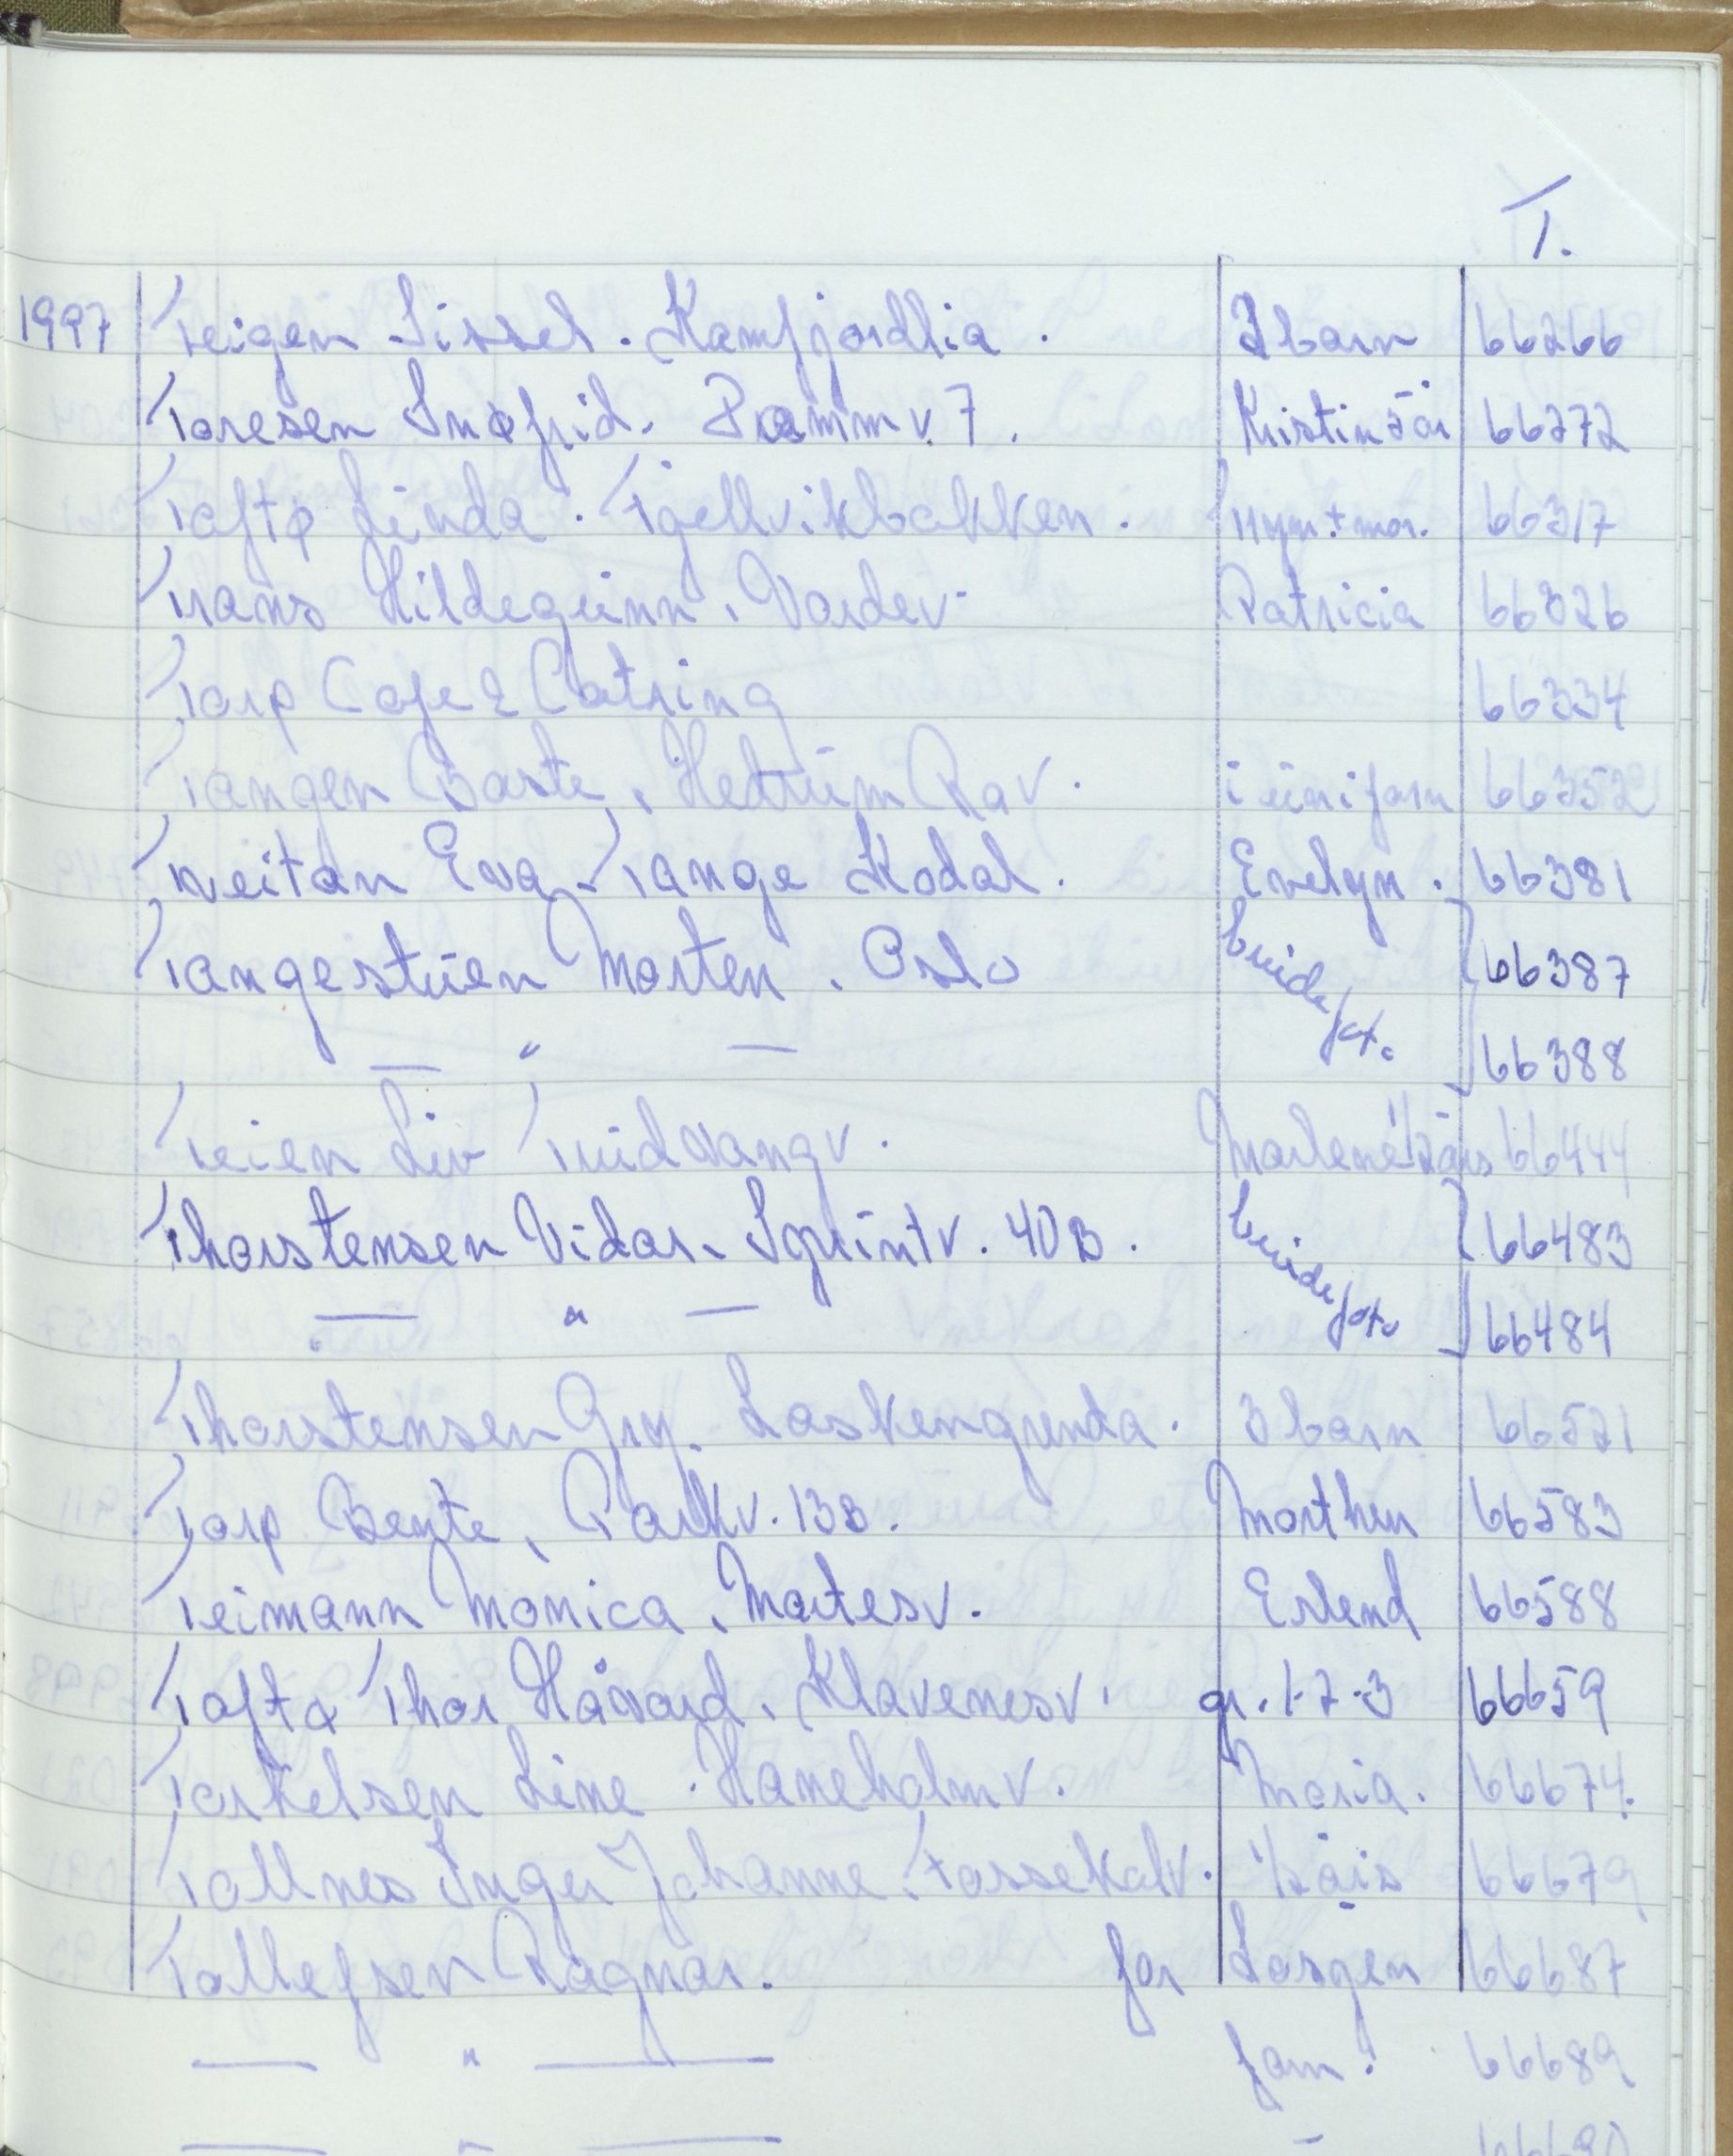 T.
1997 Teigen Sissel. Kamfjordlia. 2 barn 66266
Toresen Snøfrid. Pramm v. 7. Kristin 5 år 66272
Toftø Linda. Tjøllvikbakken. 11 mn + mor. 66317
Trans Hildegunn. Vardev. Patricia 66326
Torp Cafe & Catring 66334
Tangen Børte, Hedrum Ra V. i uniform 66352
Tveitan Eva - Tange Kodal. Evelyn. 66381
Tangestuen Morten. Oslo brudefoto. 66387
— " — 66388
Teien Liv Tuidvangv. Marlene 1/2 års 66444
Thorstensen Vidar. Spuintv. 40 B. brudefoto 66483
— " — 66484
Thorstensen Gry. Laskengrenda. 3 barn 66521
Torp Bente, Parkv. 13B. Morthen 66583
Teimann Monica, Martesv. Erlend 66588
Toftø Thor Håvard. Klavenesv. gr. 1-2-3 66659
Torkelsen Line. Haneholmv. Maria. 66674.
Tollnes Inger Johanne. Fossekalv. 1/2 års 66679
Tollefsen Ragnar. for Jørgen 66687
— " — fam. 66689
— " — - 66690